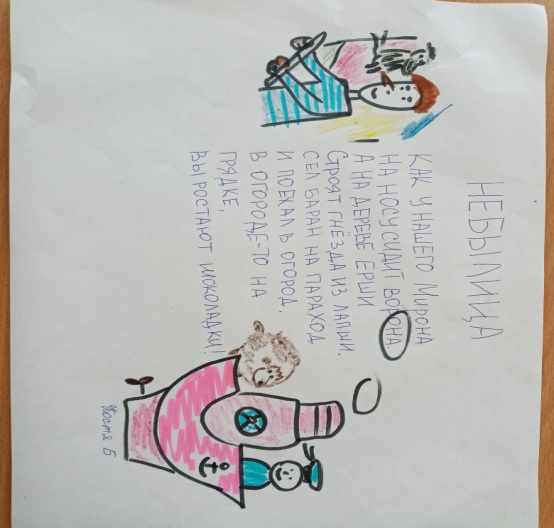 НЕБЫЛИЦА
КАК У НАШЕГО МИРОНА
НА НОСУ СИДИТ ВОРОНА
А НА ДЕРЕВЕ ЕРШИ
СТРОЯТ ГНЁЗДА ИЗ ЛАПШИ.
СЕЛ БАРАН НА ПАРАХОД
И ПОЕХАЛ В ОГОРОД.
В ОГОРОДЕ-ТО НА
ГРЯДКЕ,
ВЫРОСТАЮТ ШОКОЛАДКИ!
Костя Б